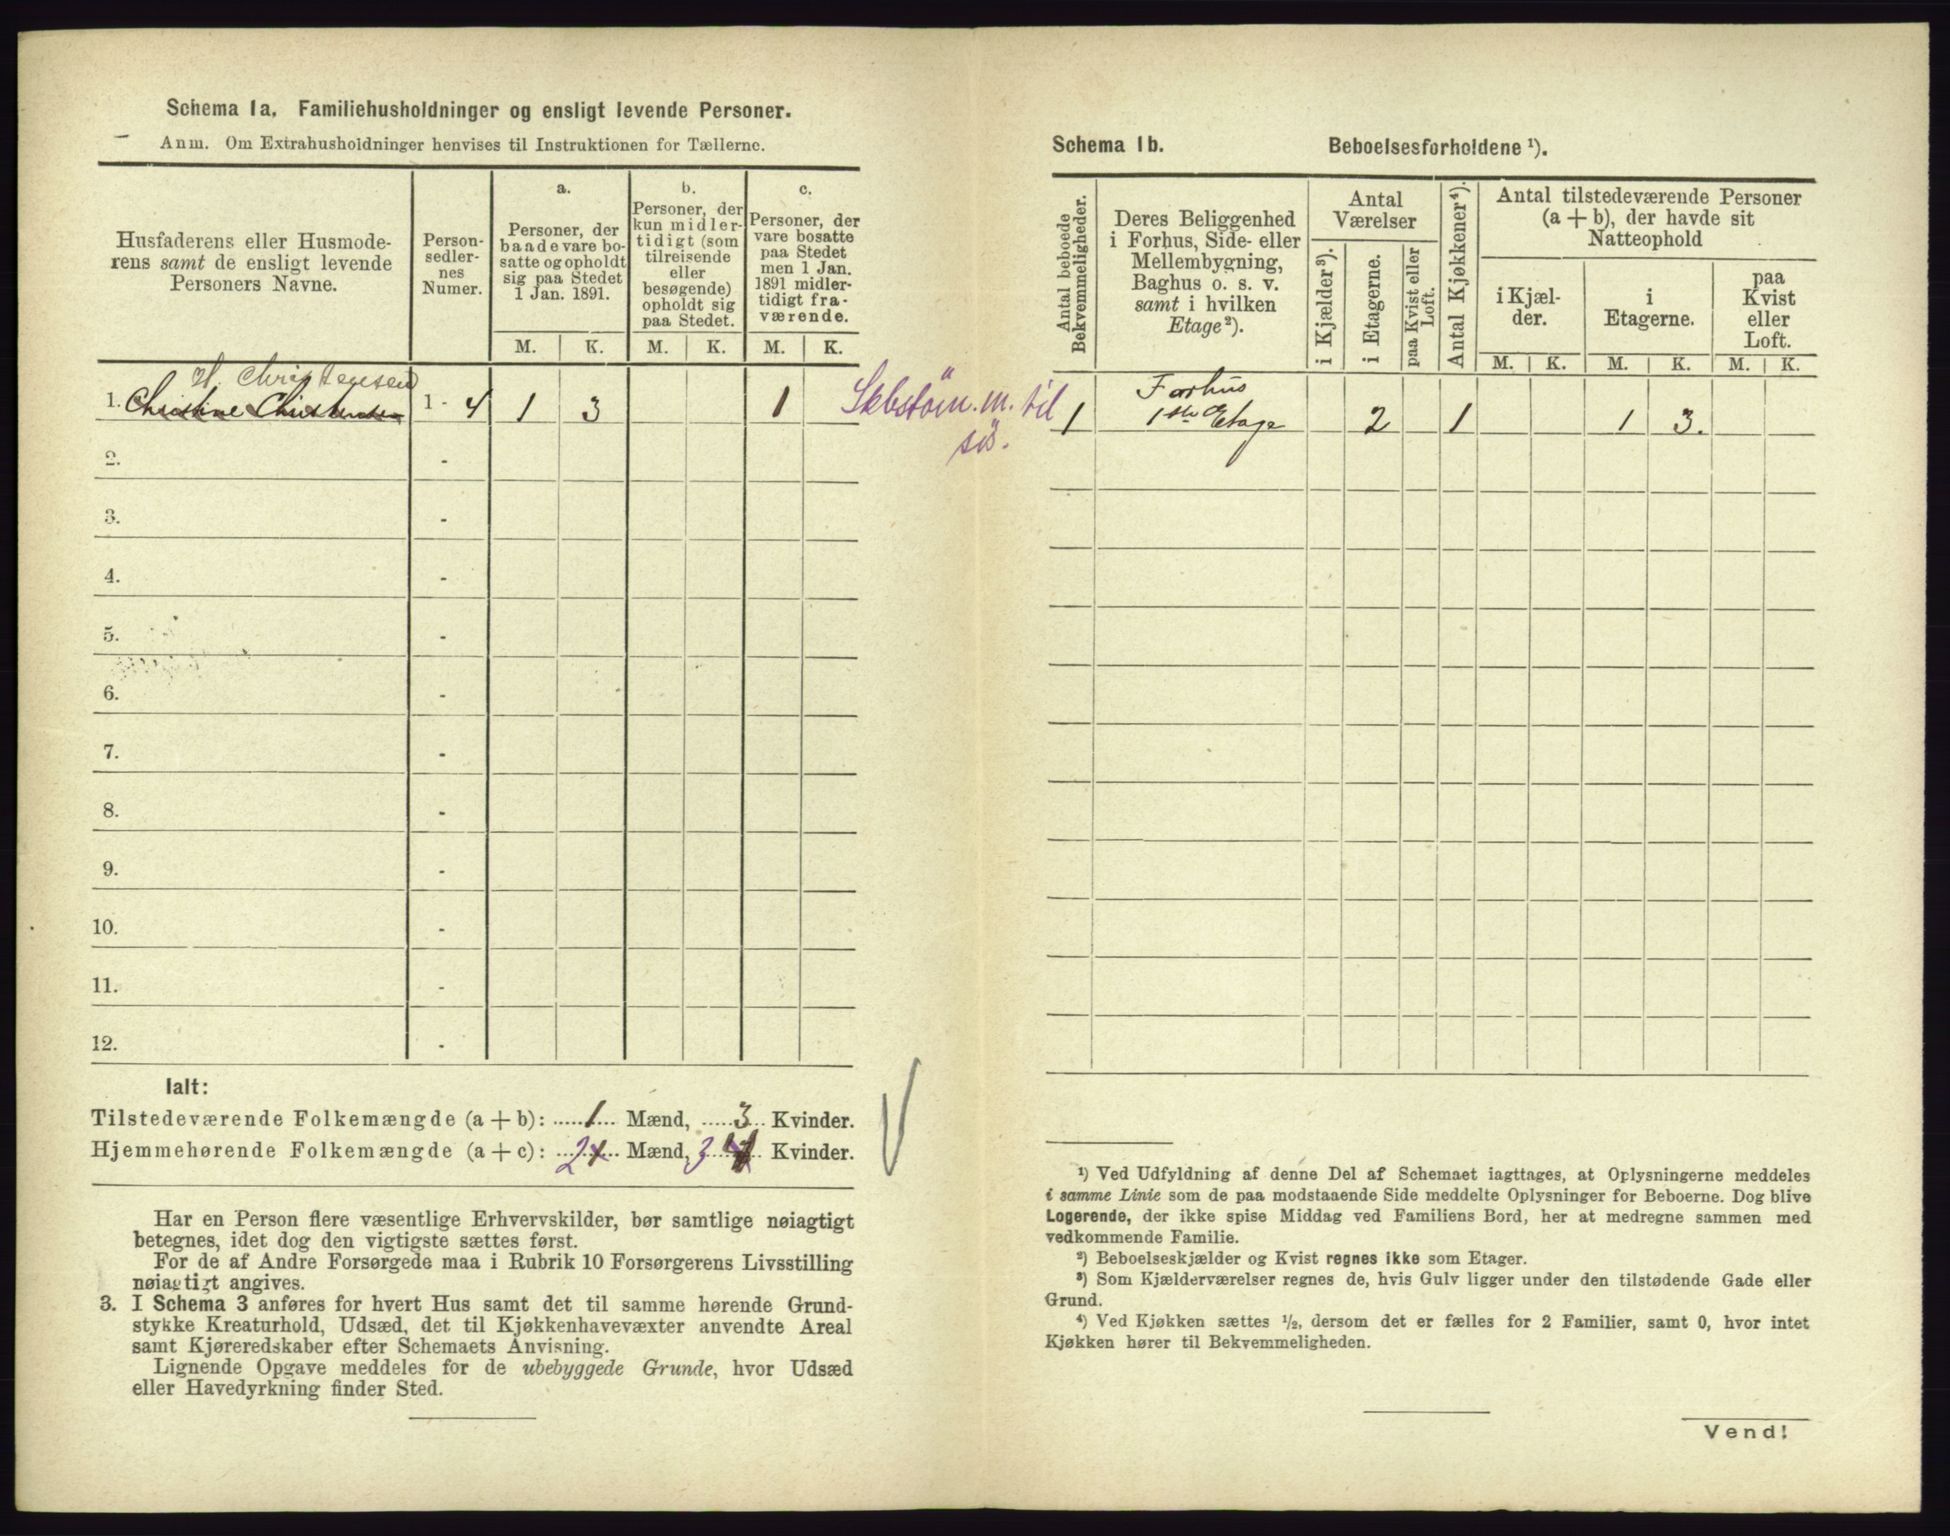 Schema 1a. Familiehusholdninger og ensligt levende Personer.
Anm. Om Extrahusholdninger henvises til Instruktionen for Tællerne.
Husfaderens eller Husmode-
rens samt de ensligt levende
Personers Navne.
Person-
sedler-
nes
Numer.
a.
Personer, der
baade vare bo-
satte og opholdt
sig paa Stedet
1 Jan. 1891.
b.
Personer, der
kun midler-
tidigt (som
tilreisende
eller
besøgende)
opholdt sig
paa Stedet.
c.
Personer, der
vare bosatte
paa Stedet
men 1 Jan.
1891 midler-
tidigt fra-
værende.
M. K. M. K. M. K.
H. Christensen
1. Christine Christensen 1 - 4 1 3 1
Skbstöm. m. til
sös.
2. -
3. -
4. -
5. -
6. -
7. -
8. -
9. -
10. -
11. -
12. -
Ialt:
Tilstedeværende Folkemængde (a + b): 1 Mænd, 3 Kvinder.
Hjemmehørende Folkemængde (a + c): 2 1 Mænd, 3 4 Kvinder.
Har en Person flere væsentlige Erhvervskilder, bør samtlige nøiagtigt
betegnes, idet dog den vigtigste sættes først.
For de af Andre Forsørgede maa i Rubrik 10 Forsørgerens Livsstilling
nøiagtigt angives.
3. I Schema 3 anføres for hvert Hus samt det til samme hørende Grund-
stykke Kreaturhold, Udsæd, det til Kjøkkenhavevæxter anvendte Areal
samt Kjøreredskaber efter Schemaets Anvisning.
Lignende Opgave meddeles for de ubebyggede Grunde, hvor Udsæd
eller Havedyrkning finder Sted.
Schema 1b. Beboelsesforholdene ¹).
Antal beboede
Bekvemmeligheder.
Deres Beliggenhed
i Forhus, Side- eller
Mellembygning,
Baghus o. s. v.
samt i hvilken
Etage²).
Antal
Værelser
i Kjælder³).
i Etagerne.
paa Kvist eller
Loft.
Antal Kjøkkener⁴).
Antal tilstedeværende Personer
(a + b), der havde sit
Natteophold
i Kjæl-
der.
i
Etagerne.
paa
Kvist
eller
Loft.
M. K. M. K. M. K.
Forhus
1 1ste Etage 2 1 1 3.
¹) Ved Udfyldning af denne Del af Schemaet iagttages, at Oplysningerne meddeles
i samme Linie som de paa modstaaende Side meddelte Oplysninger for Beboerne. Dog blive
Logerende, der ikke spise Middag ved Familiens Bord, her at medregne sammen med
vedkommende Familie.
²) Beboelseskjælder og Kvist regnes ikke som Etager.
³) Som Kjælderværelser regnes de, hvis Gulv ligger under den tilstødende Gade eller
Grund.
⁴) Ved Kjøkken sættes ½, dersom det er fælles for 2 Familier, samt 0, hvor intet
Kjøkken hører til Bekvemmeligheden.
Vend!